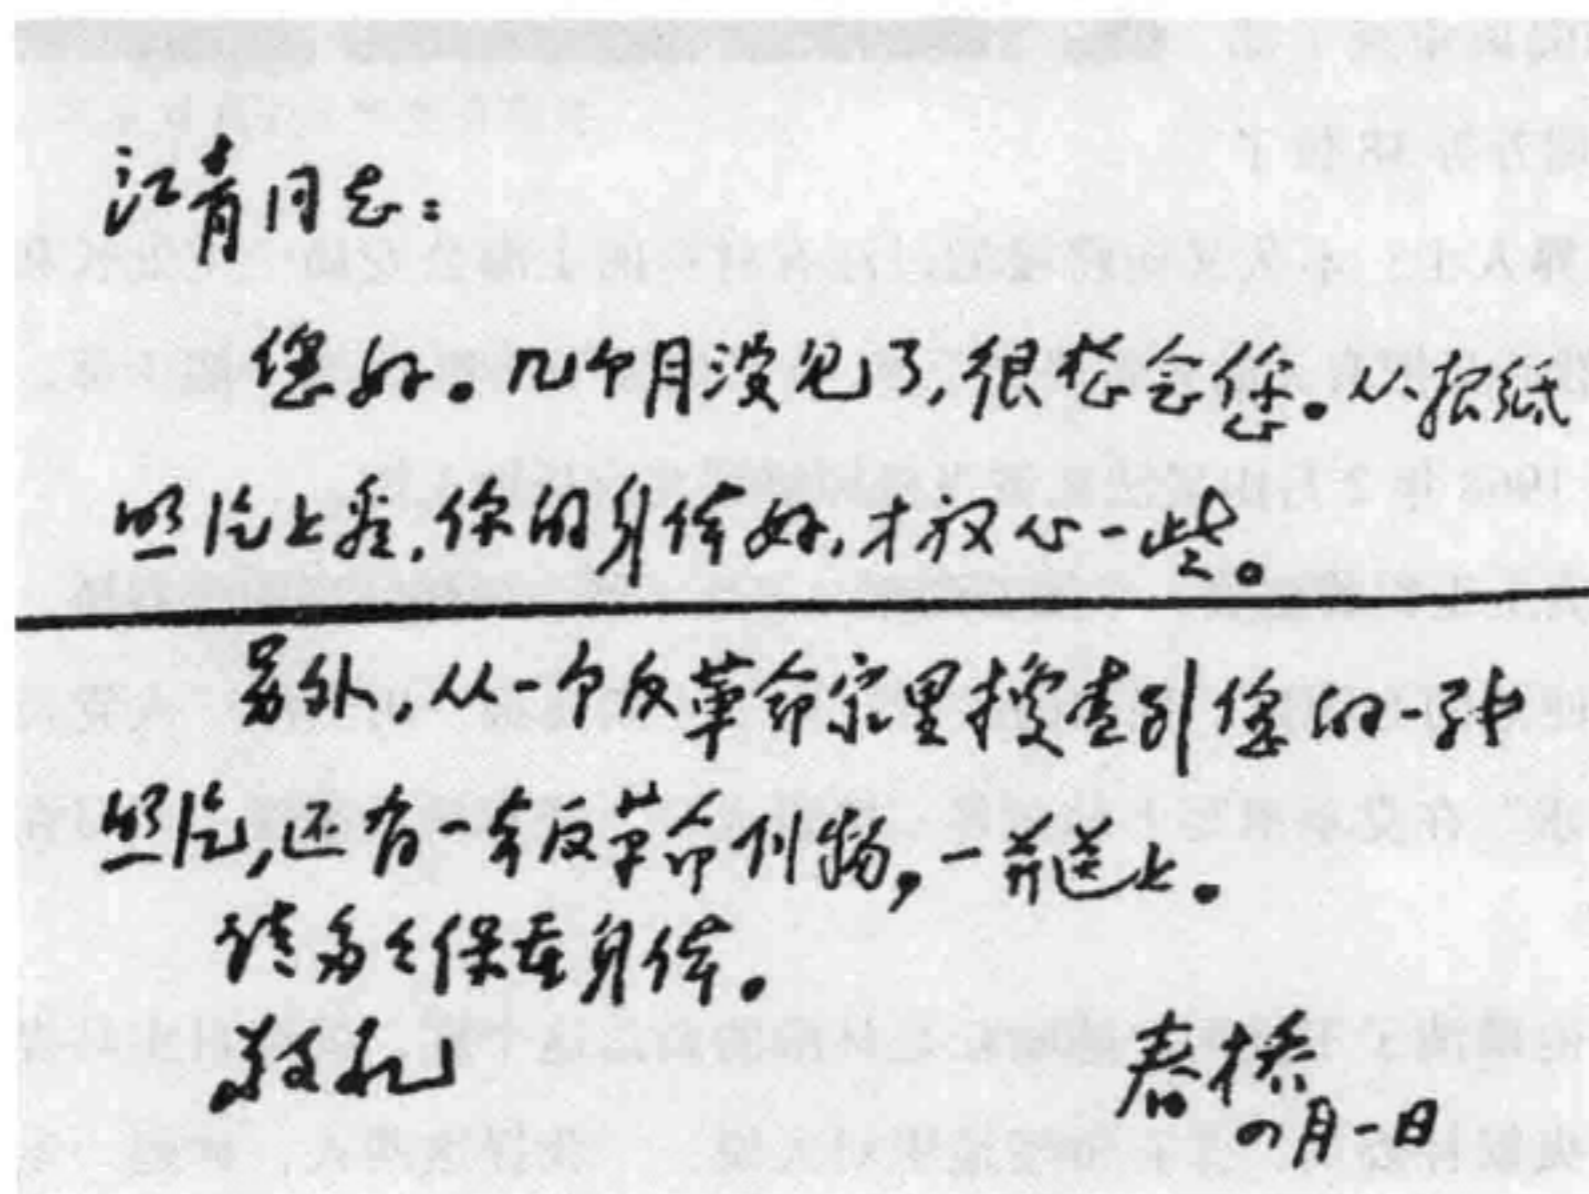 江青同志：
您好。几个月没见了，很想念您。从报纸
照片上看，你的身体好，才放心一些。
另外，从一个反革命家里搜查到您的一张
照片，还有一套反革命刊物，一并送上。
请多多保重身体。
敬礼
春桥
四月一日